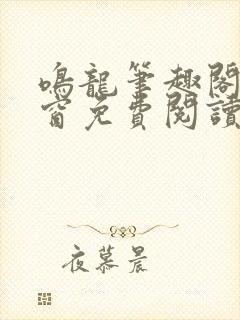 鳴龍筆趣閣
窗免費閱讀
夜慕晨